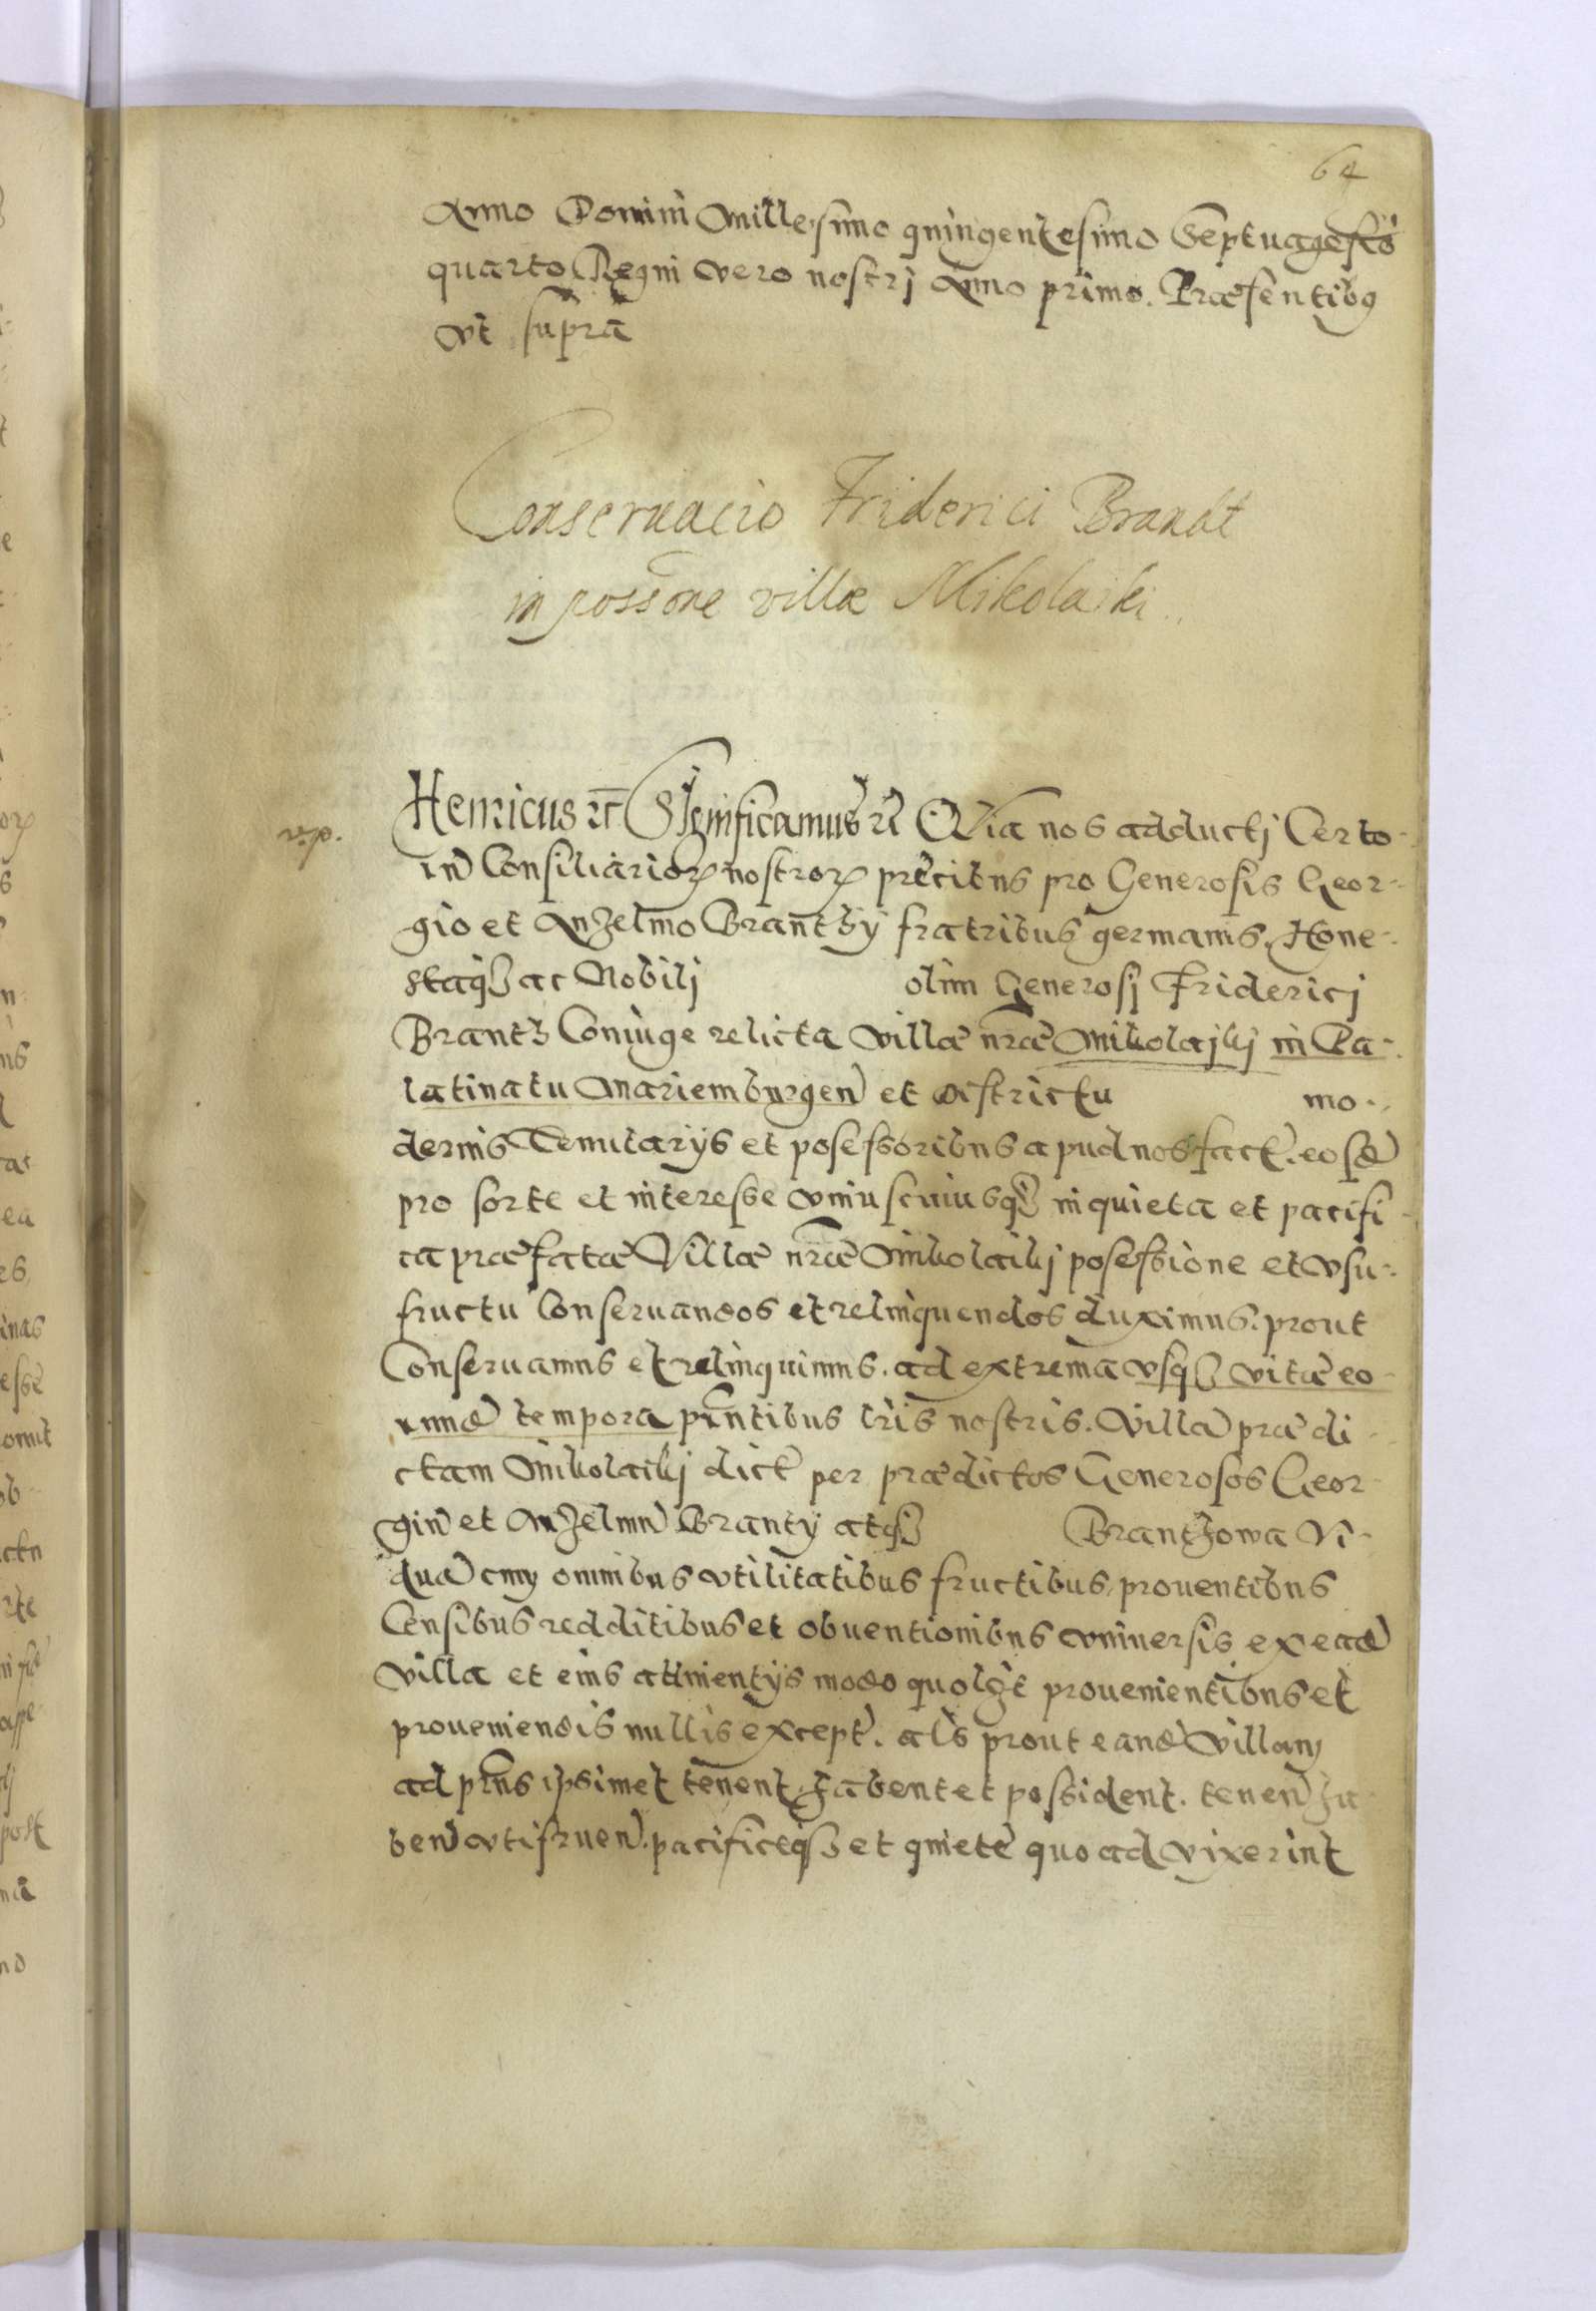 64
Anno Domini Millesimo quingentesimo Septuagesīo
quarto Regni vero nostrj Anno primo. Præsentibq
vt supra
Conseruacio Friderici Brandt
in possone villæ Mikolaiki
Henricus etc Significamus etc Quia nos adductj Certo-
in Consiliarior nostror precibus pro Generosis Geor-
gio et Anzelmo Brantby fratribus germanis. Hone-
staqz ac Nobilj olim Generosj Friderici
Brantz Coniuge relicta villæ nræ Mikolajkj in Pa-
latinatu Mariemburgen et districtu mo-
dernis Tenutarijs et posessoribus apud nos fact. eosd
pro sorte et interesse vniuscuiusqz in quieta et pacifi-
ca præfatæ Villæ nræ Mikolaikj posessione et vsu-
fructu Conseruandos et relinquendos duximus. prout
Conseruamus et relinquimus. ad extrema vsqz vitæ eo-
rumd tempora pntibus lris nostris. Villa prædi-
ctam Mikolaikj dict per prædictos Generosos Geor-
giu et Anzelmu Brantj atqz Brantzowa Vi-
dua cum omnibus vtilitatibus fructibus prouentibus
Censibus redditibus et obuentionibus vniuersis ex ead
villa et eius attinentijs modo quolibt prouenientibus et
proueniendis nullis except. als prout eand Villam
ad pns ipsimet tenent habent et possident. tenen ha-
ben vtifruen. pacificeqz et quiete quoad vixerint